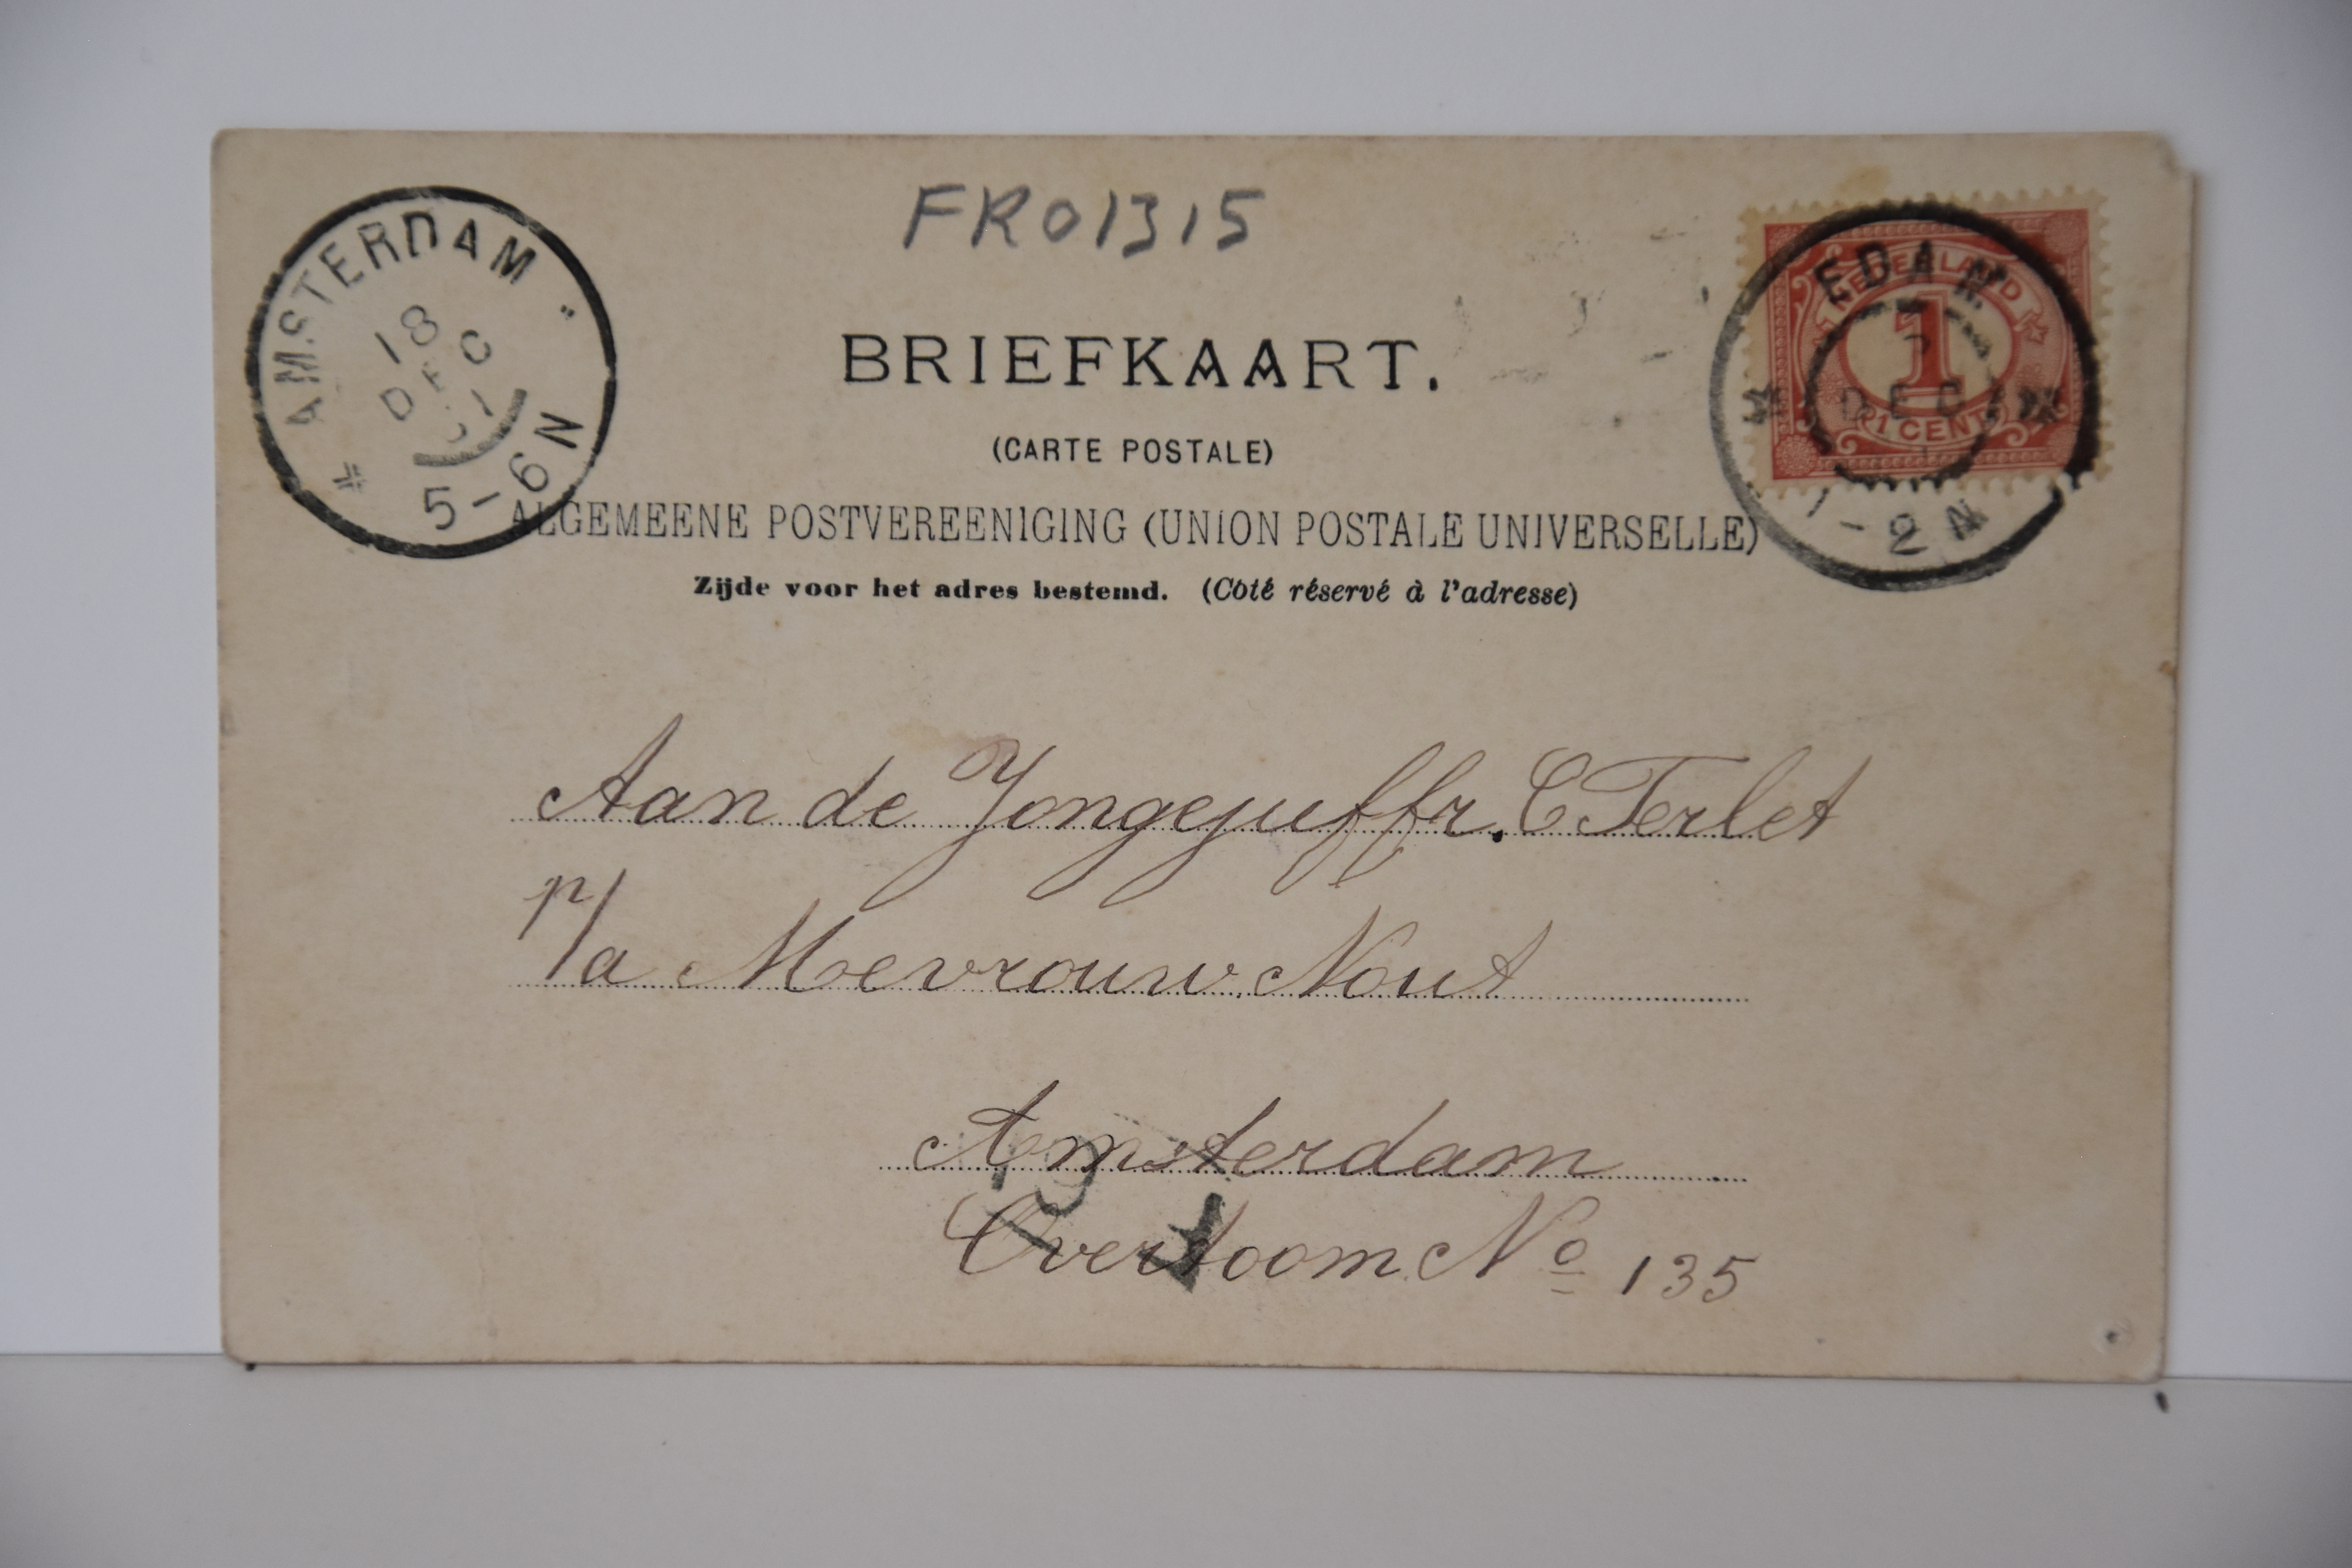 FR01315
AMSTERDAM
18
DEC
5-6N
EDAM
DEC
1-2N
NEDERLAND
1
1 CENT
BRIEFKAART.
(CARTE POSTALE)
ALGEMEENE POSTVEREENIGING (UNION POSTALE UNIVERSELLE)
Zijde voor het adres bestemd. (Côté réservé à l'adresse)
Aan de Jongejuffr. C Terlet
p/a Mevrouw Nout
Amsterdam
Overtoom No 135